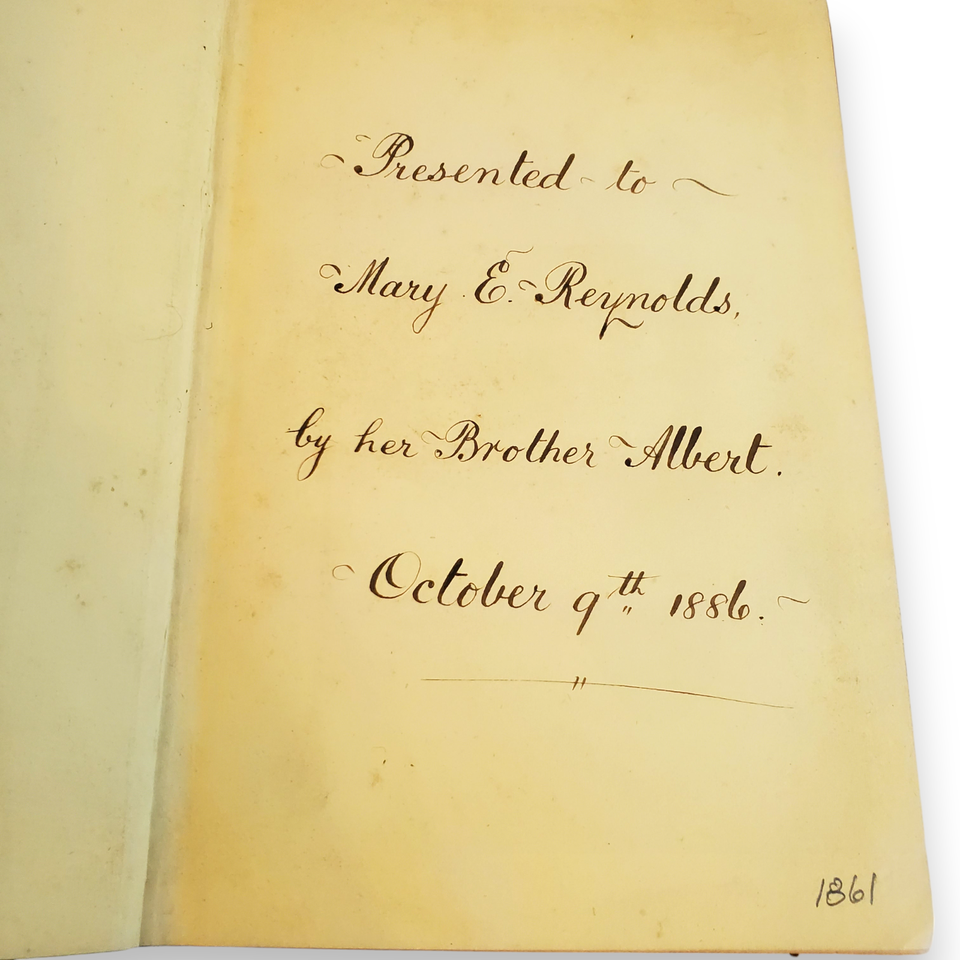 Presented to
Mary E. Reynolds,
by her Brother Albert.
October 9th 1886.
1861